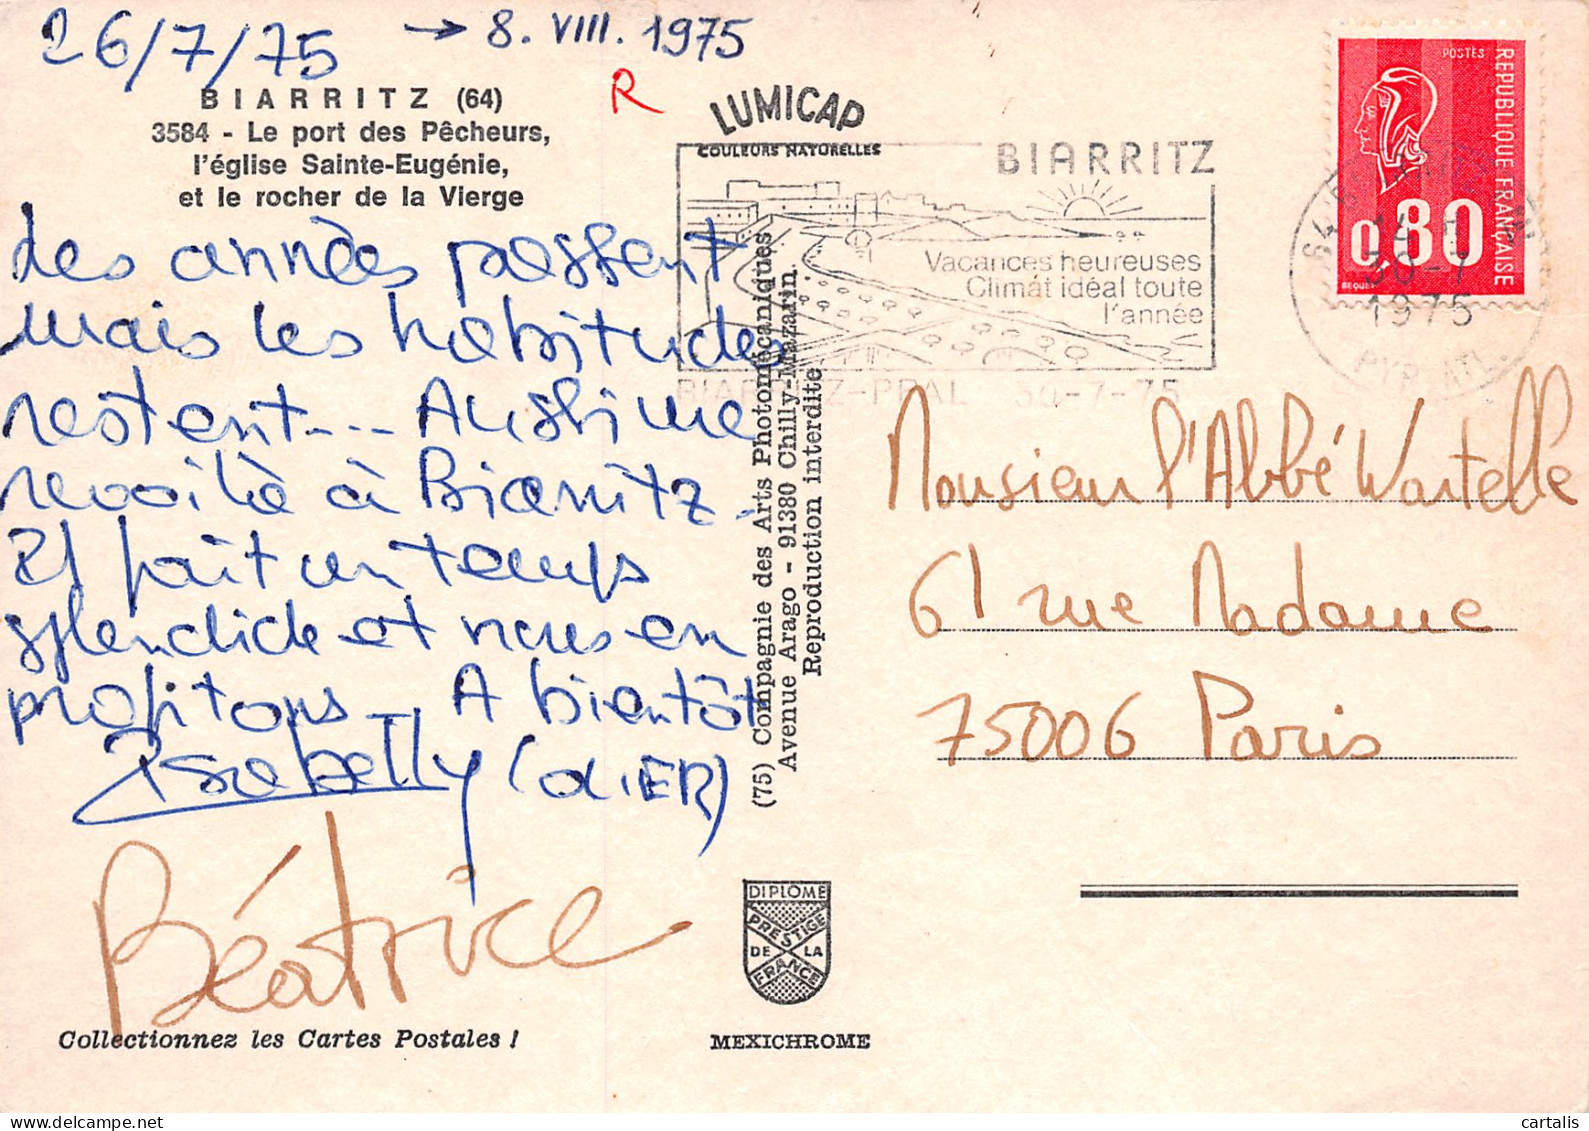 26/7/75 → 8. VIII. 1975
BIARRITZ (64)
3584 - Le port des Pêcheurs,
l'église Sainte-Eugénie,
et le rocher de la Vierge
des années passent
mais les habitudes
restent... Aussi me
revoilà à Biarritz.
Il fait un temps
splendide et nous en
profitons. A bientôt
Isabelly (diER)
Béatrice
Collectionnez les Cartes Postales !
R
LUMICAP
COULEURS NATURELLES
BIARRITZ
Vacances heureuses
Climat idéal toute
l'année
BIARRITZ-PPAL 30-7-75
(75) Compagnie des Arts Photomécaniques
Avenue Arago - 91380 Chilly-Mazarin.
Reproduction interdite
DIPLOME
PRESTIGE
DE LA
FRANCE
MEXICHROME
POSTES
REPUBLIQUE FRANÇAISE
0,80
BEQUET
64
30-7
1975
PYR. ATL.
Monsieur l'Abbé Wartelle
61 rue Madame
75006 Paris
cartalis